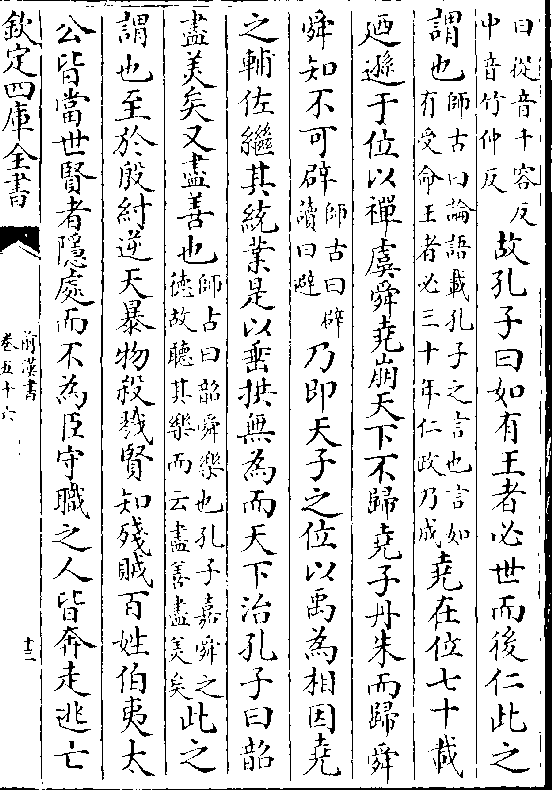 曰從音千容反
中音竹仲反
故孔子曰如有王者必世而後仁此之
謂也
師古曰論語載孔子之言也言如
有受命王者必三十年仁政乃成
堯在位七十載
迺遜于位以禪虞舜堯崩天下不歸堯子丹朱而歸舜
舜知不可辟
師古曰辟
讀曰避
乃即天子之位以禹為相因堯
之輔佐繼其統業是以垂拱無為而天下治孔子曰韶
盡美矣又盡善也
師古曰韶舜樂也孔子嘉舜之
德故聽其樂而云盡善盡美矣
此之
謂也至於殷紂逆天暴物殺戮賢知殘賊百姓伯夷太
公皆當世賢者隱處而不為臣守職之人皆奔走逃亡
欽定四庫全書
前漢書
卷五十六
十三